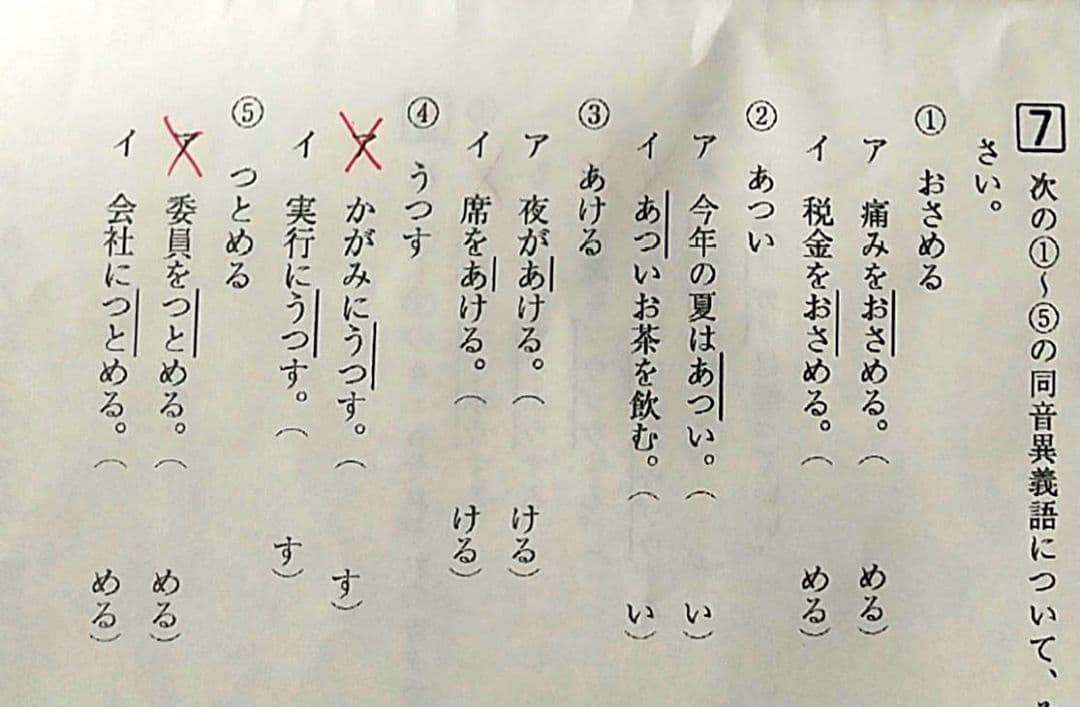 7 次の①〜⑤の同音異義語について、
さい。
① おさめる
ア 痛みをおさめる。（ める）
イ 税金をおさめる。（ める）
② あつい
ア 今年の夏はあつい。（ い）
イ あついお茶を飲む。（ い）
③ あける
ア 夜があける。（ ける）
イ 席をあける。（ ける）
④ うつす
ア かがみにうつす。（ す）
イ 実行にうつす。（ す）
⑤ つとめる
ア 委員をつとめる。（ める）
イ 会社につとめる。（ める）